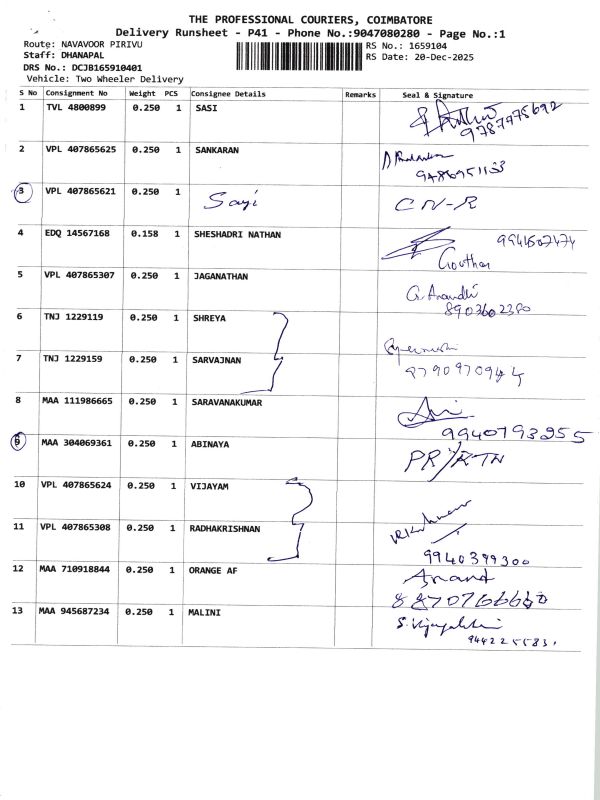 THE PROFESSIONAL COURIERS, COIMBATORE
Delivery Runsheet - P41 - Phone No.:9047080280 - Page No.:1
Route: NAVAVOOR PIRIVU
RS No.: 1659104
Staff: DHANAPAL
RS Date: 20-Dec-2025
DRS No.: DCJB165910401
Vehicle: Two Wheeler Delivery
S No Consignment No Weight PCS Consignee Details Remarks Seal & Signature
1 TVL 4800899 0.250 1 SASI
9787975692
2 VPL 407865625 0.250 1 SANKARAN
9486951133
3 VPL 407865621 0.250 1 Sayi CN-R
4 EDQ 14567168 0.158 1 SHESHADRI NATHAN 9941607474
Gouthan
5 VPL 407865307 0.250 1 JAGANATHAN G. Anandhi
8903602380
6 TNJ 1229119 0.250 1 SHREYA
7 TNJ 1229159 0.250 1 SARVAJNAN 9790970944
8 MAA 111986665 0.250 1 SARAVANAKUMAR
9940793255
9 MAA 304069361 0.250 1 ABINAYA PR/KTN
10 VPL 407865624 0.250 1 VIJAYAM
11 VPL 407865308 0.250 1 RADHAKRISHNAN
9940399300
12 MAA 710918844 0.250 1 ORANGE AF Anand
13 MAA 945687234 0.250 1 MALINI S. Vijayalakshmi
944225583.